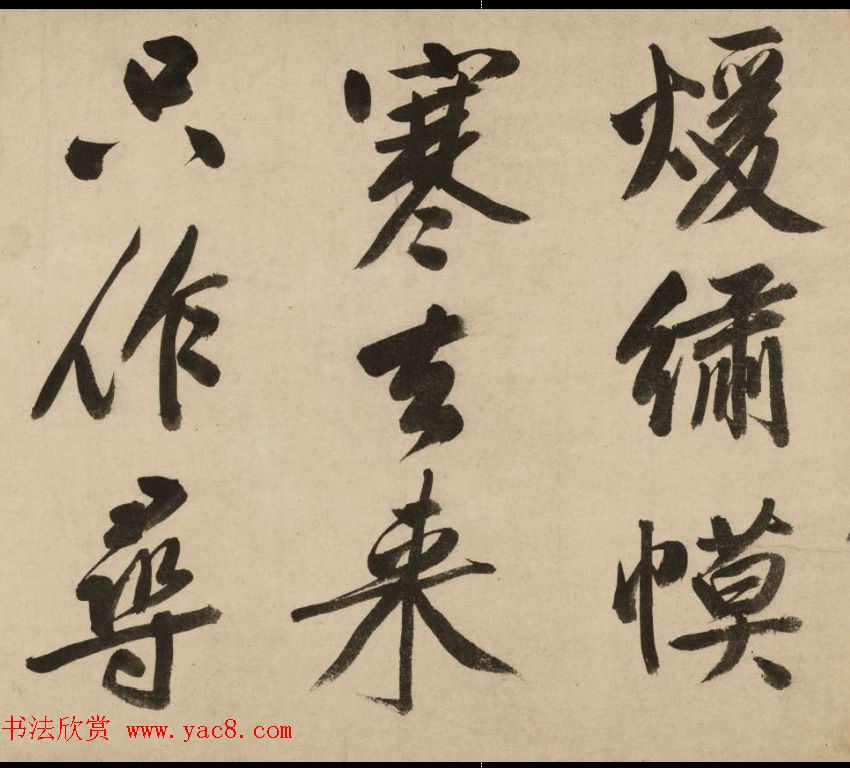 煖繡幙
寒去来
只作尋
书法欣赏 www.yac8.com